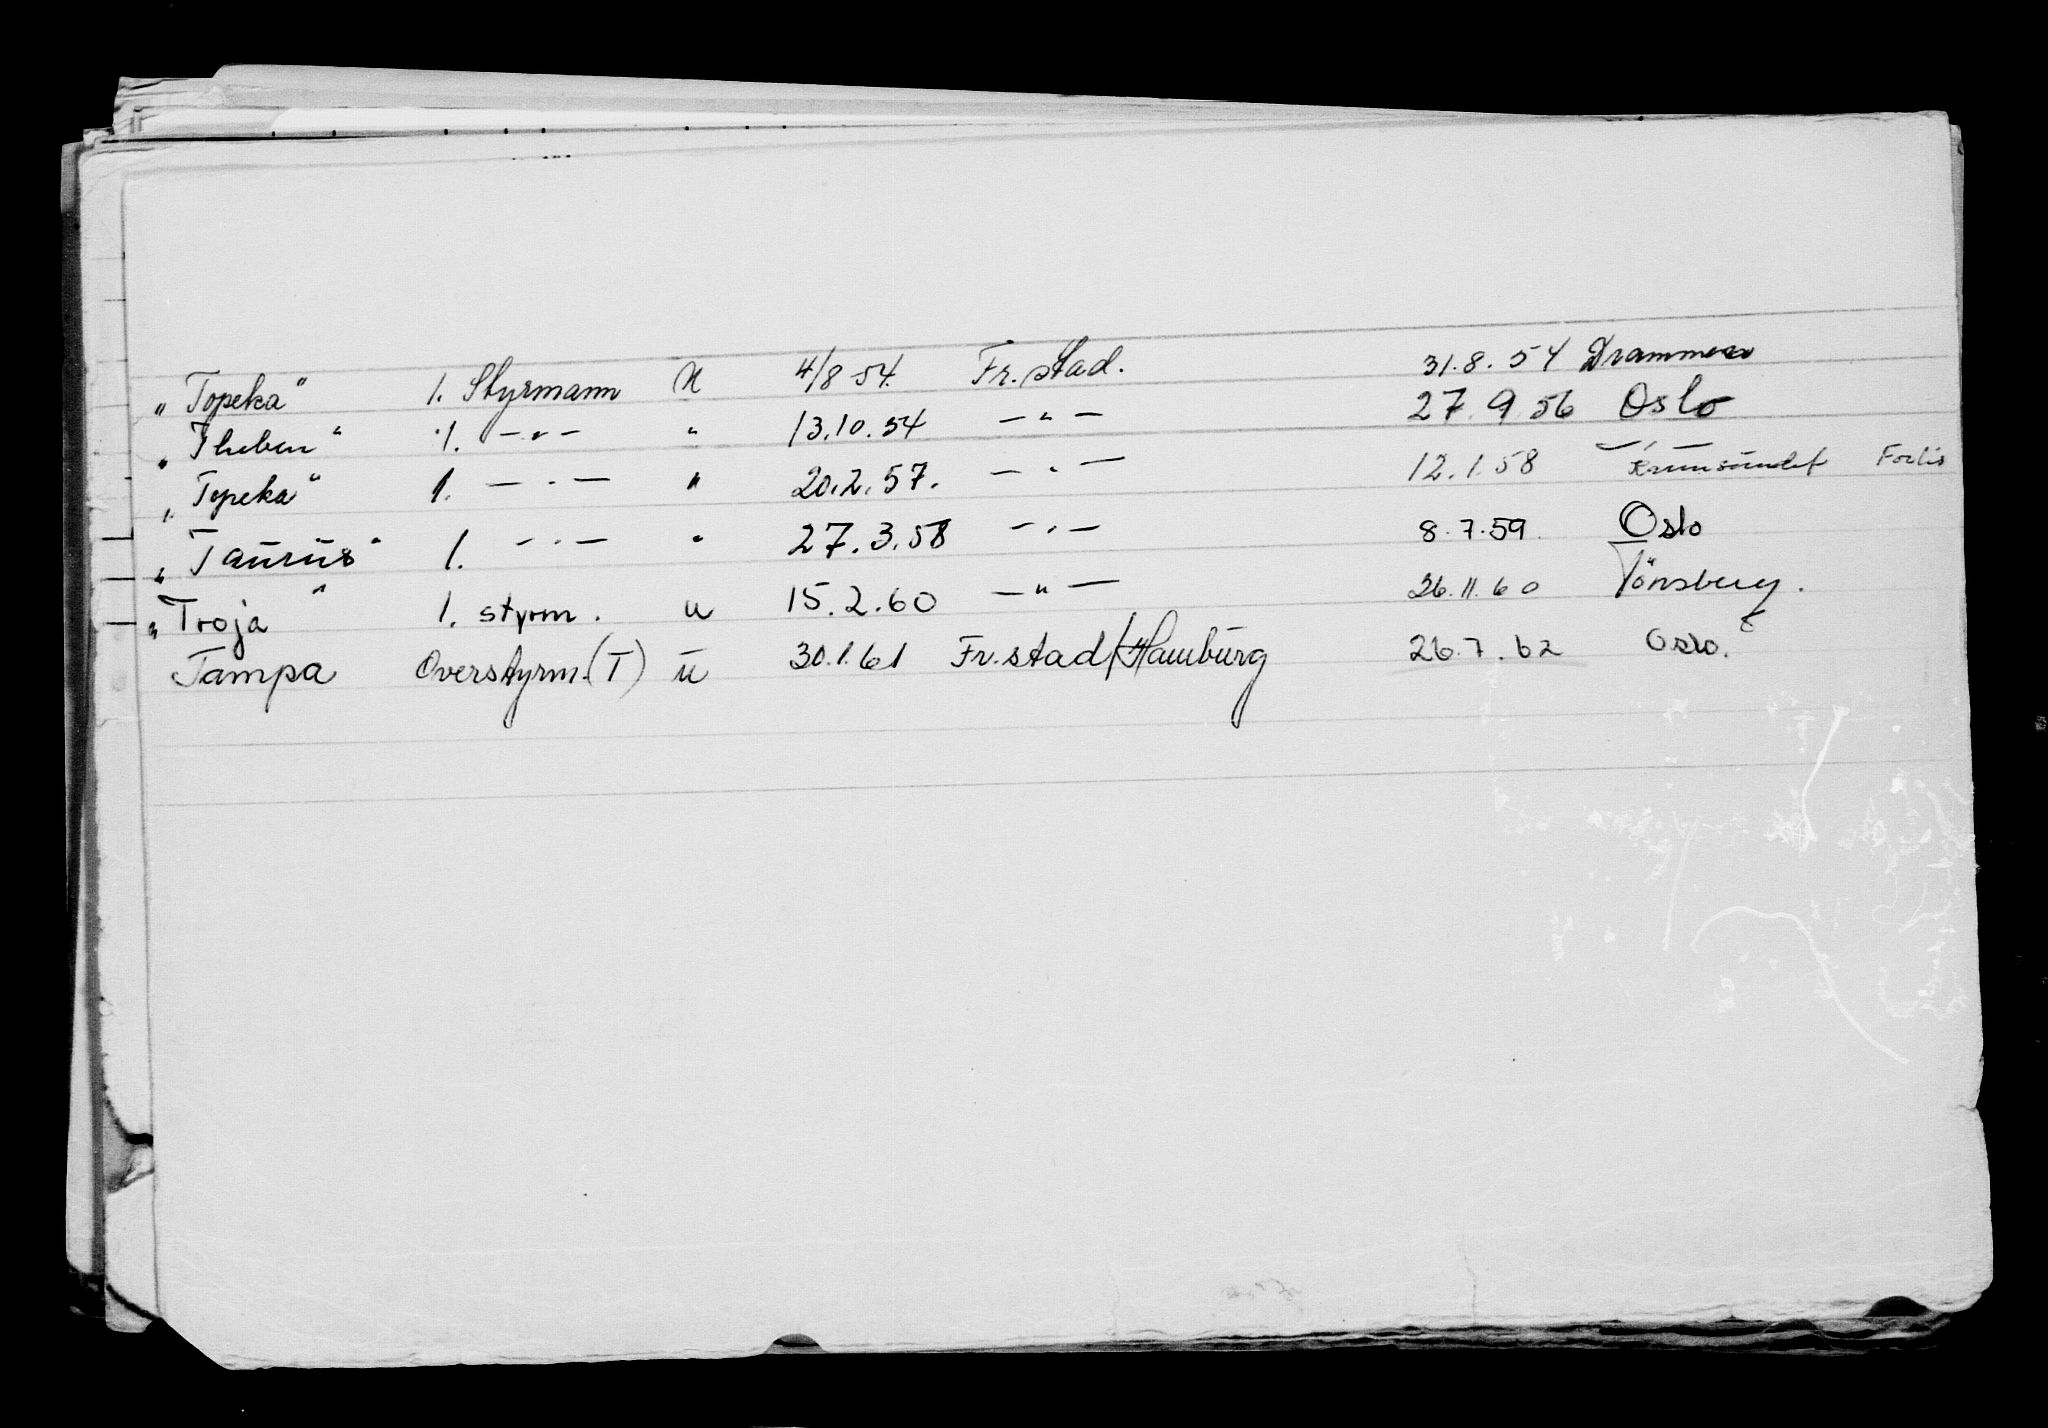 „Topeka" 1. Styrmann U 4/8 54. Fr.stad. 31.8.54 Drammen
„Theben" 1. -"- " 13.10.54 -"- 27.9.56 Oslo
„Topeka" 1. -"- " 20.2.57. -"- 12.1.58
„Taurus" 1. -"- " 27.3.58 -"- 8.7.59. Oslo
„Troja" 1. styrm. u 15.2.60 -"- 26.11.60 Tönsberg.
Tampa Overstyrm.(T) u 30.1.61 Fr.stad/Hamburg 26.7.62 Oslo.